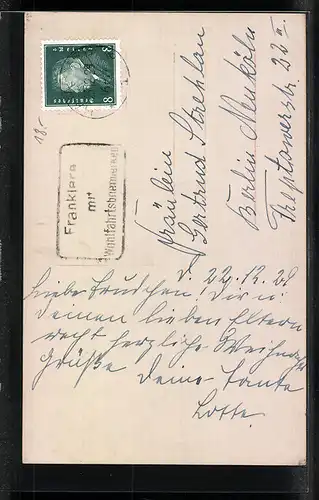 8 Deutsches Reich 8
18.-
Frankiere
mit
Wohlfahrtsbriefmarken
Fräulein
Gertrud Strehlau
Berlin Neukölln
Treptowerstr. 22 II.
d. 22.12.28
Liebe Trudchen! Dir u.
Deinen lieben Eltern
recht herzliche Weihnachts
grüße Deine Tante
Lotte.